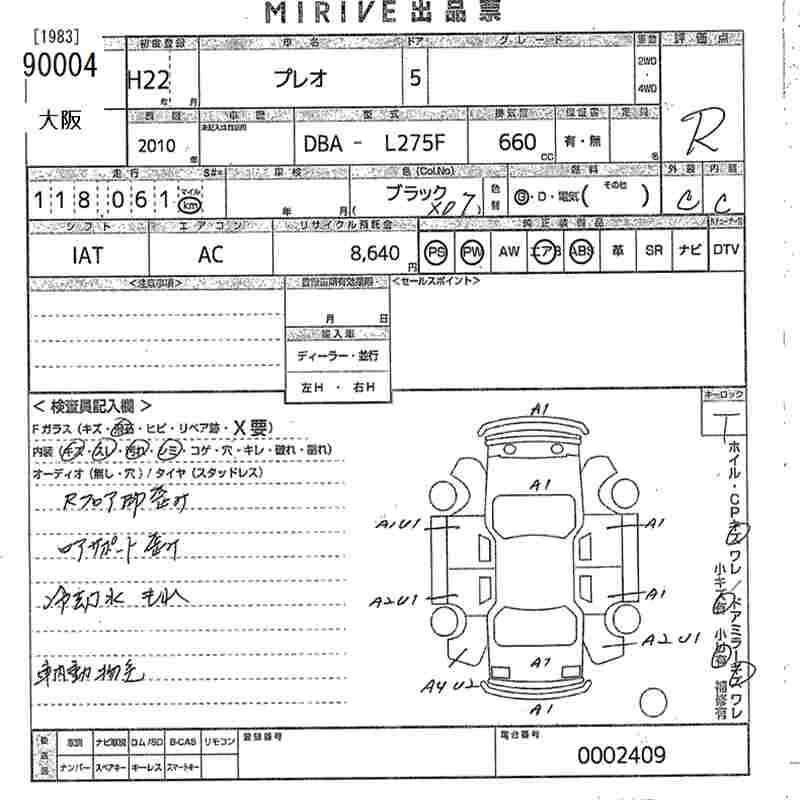 MIRIVE 出品票
[1983]
90004
大阪
初度登録 車名 ドア グレード 駆動 評価点
H22 プレオ 5 2WD・4WD
年 月
R
型式 排気量 定員
2010 DBA - L275F 660 有・無
年 cc 名
走行 車検 色(Col.No) 燃料 外装 内装
118,061 マイル km 年 月 ブラック X07 色替 G・D・電気 ( その他 ) C C
シフト エアコン リサイクル預託金 純正装備品
IAT AC 8,640 円 PS PW AW エアB ABS 革 SR ナビ DTV
<注意事項> <セールスポイント>
月 日
輸入車
ディーラー・並行
左H ・ 右H
< 検査員記入欄 > キーロック
Fガラス (キズ・ ・ヒビ・リペア跡・X要)
内装 (キズ・スレ・汚れ・シミ・コゲ・穴・キレ・破れ・割れ)
オーディオ (無し・穴) / タイヤ (スタッドレス)
Rフロア部歪み
コアサポート歪み
冷却水 もれ
車内動物毛
A1
A1
A1U1 A1
A2U1 A1
A2U1
A4U2 A1
A1
ホイル・CPキズ ワレ / ドアミラーキズ ワレ
補修有
取説 ナビ取説 ロム/SD B-CAS リモコン 登録番号 車台番号
ナンバー スペアキー キーレス スマートキー
0002409